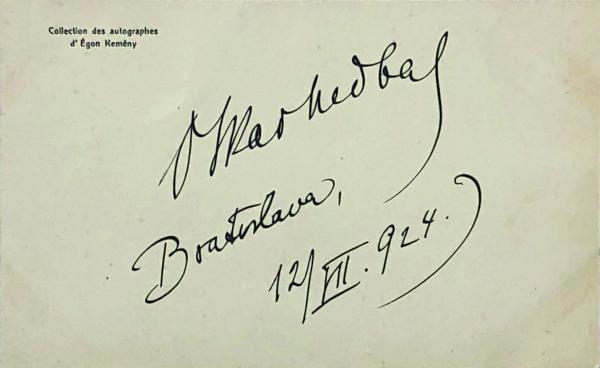 Collection des autographes
d'Égon Kemény
Oskar Nedbal
Bratislava,
12/VII. 924.